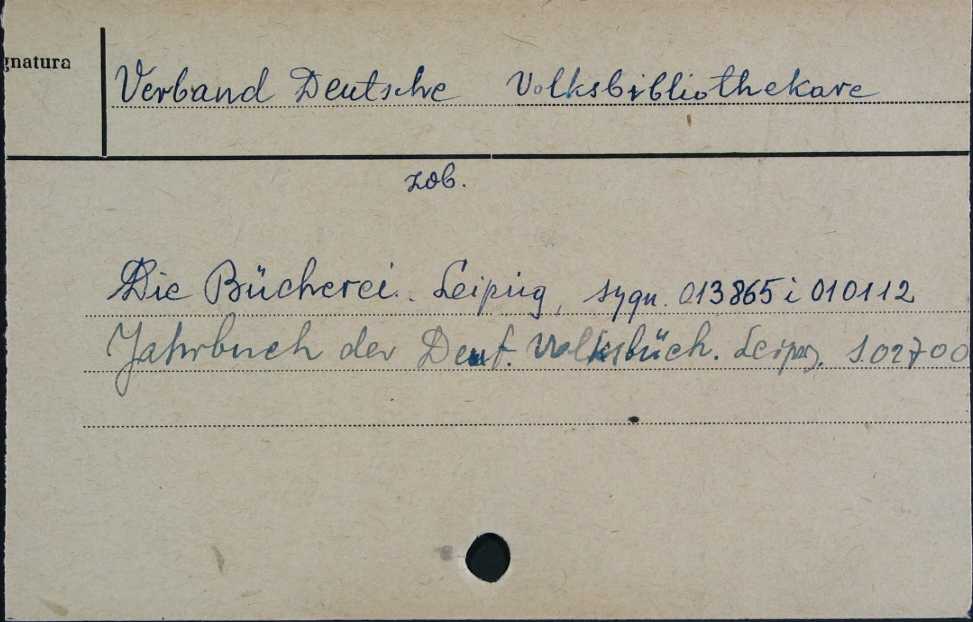 gnatura
Verband Deutsche Volksbibliothekare
zob.
Die Bücherei. Leipzig, sygn. 013865 i 010112
Jahrbuch der Deut. Volksbüch. Leipzg. 102700